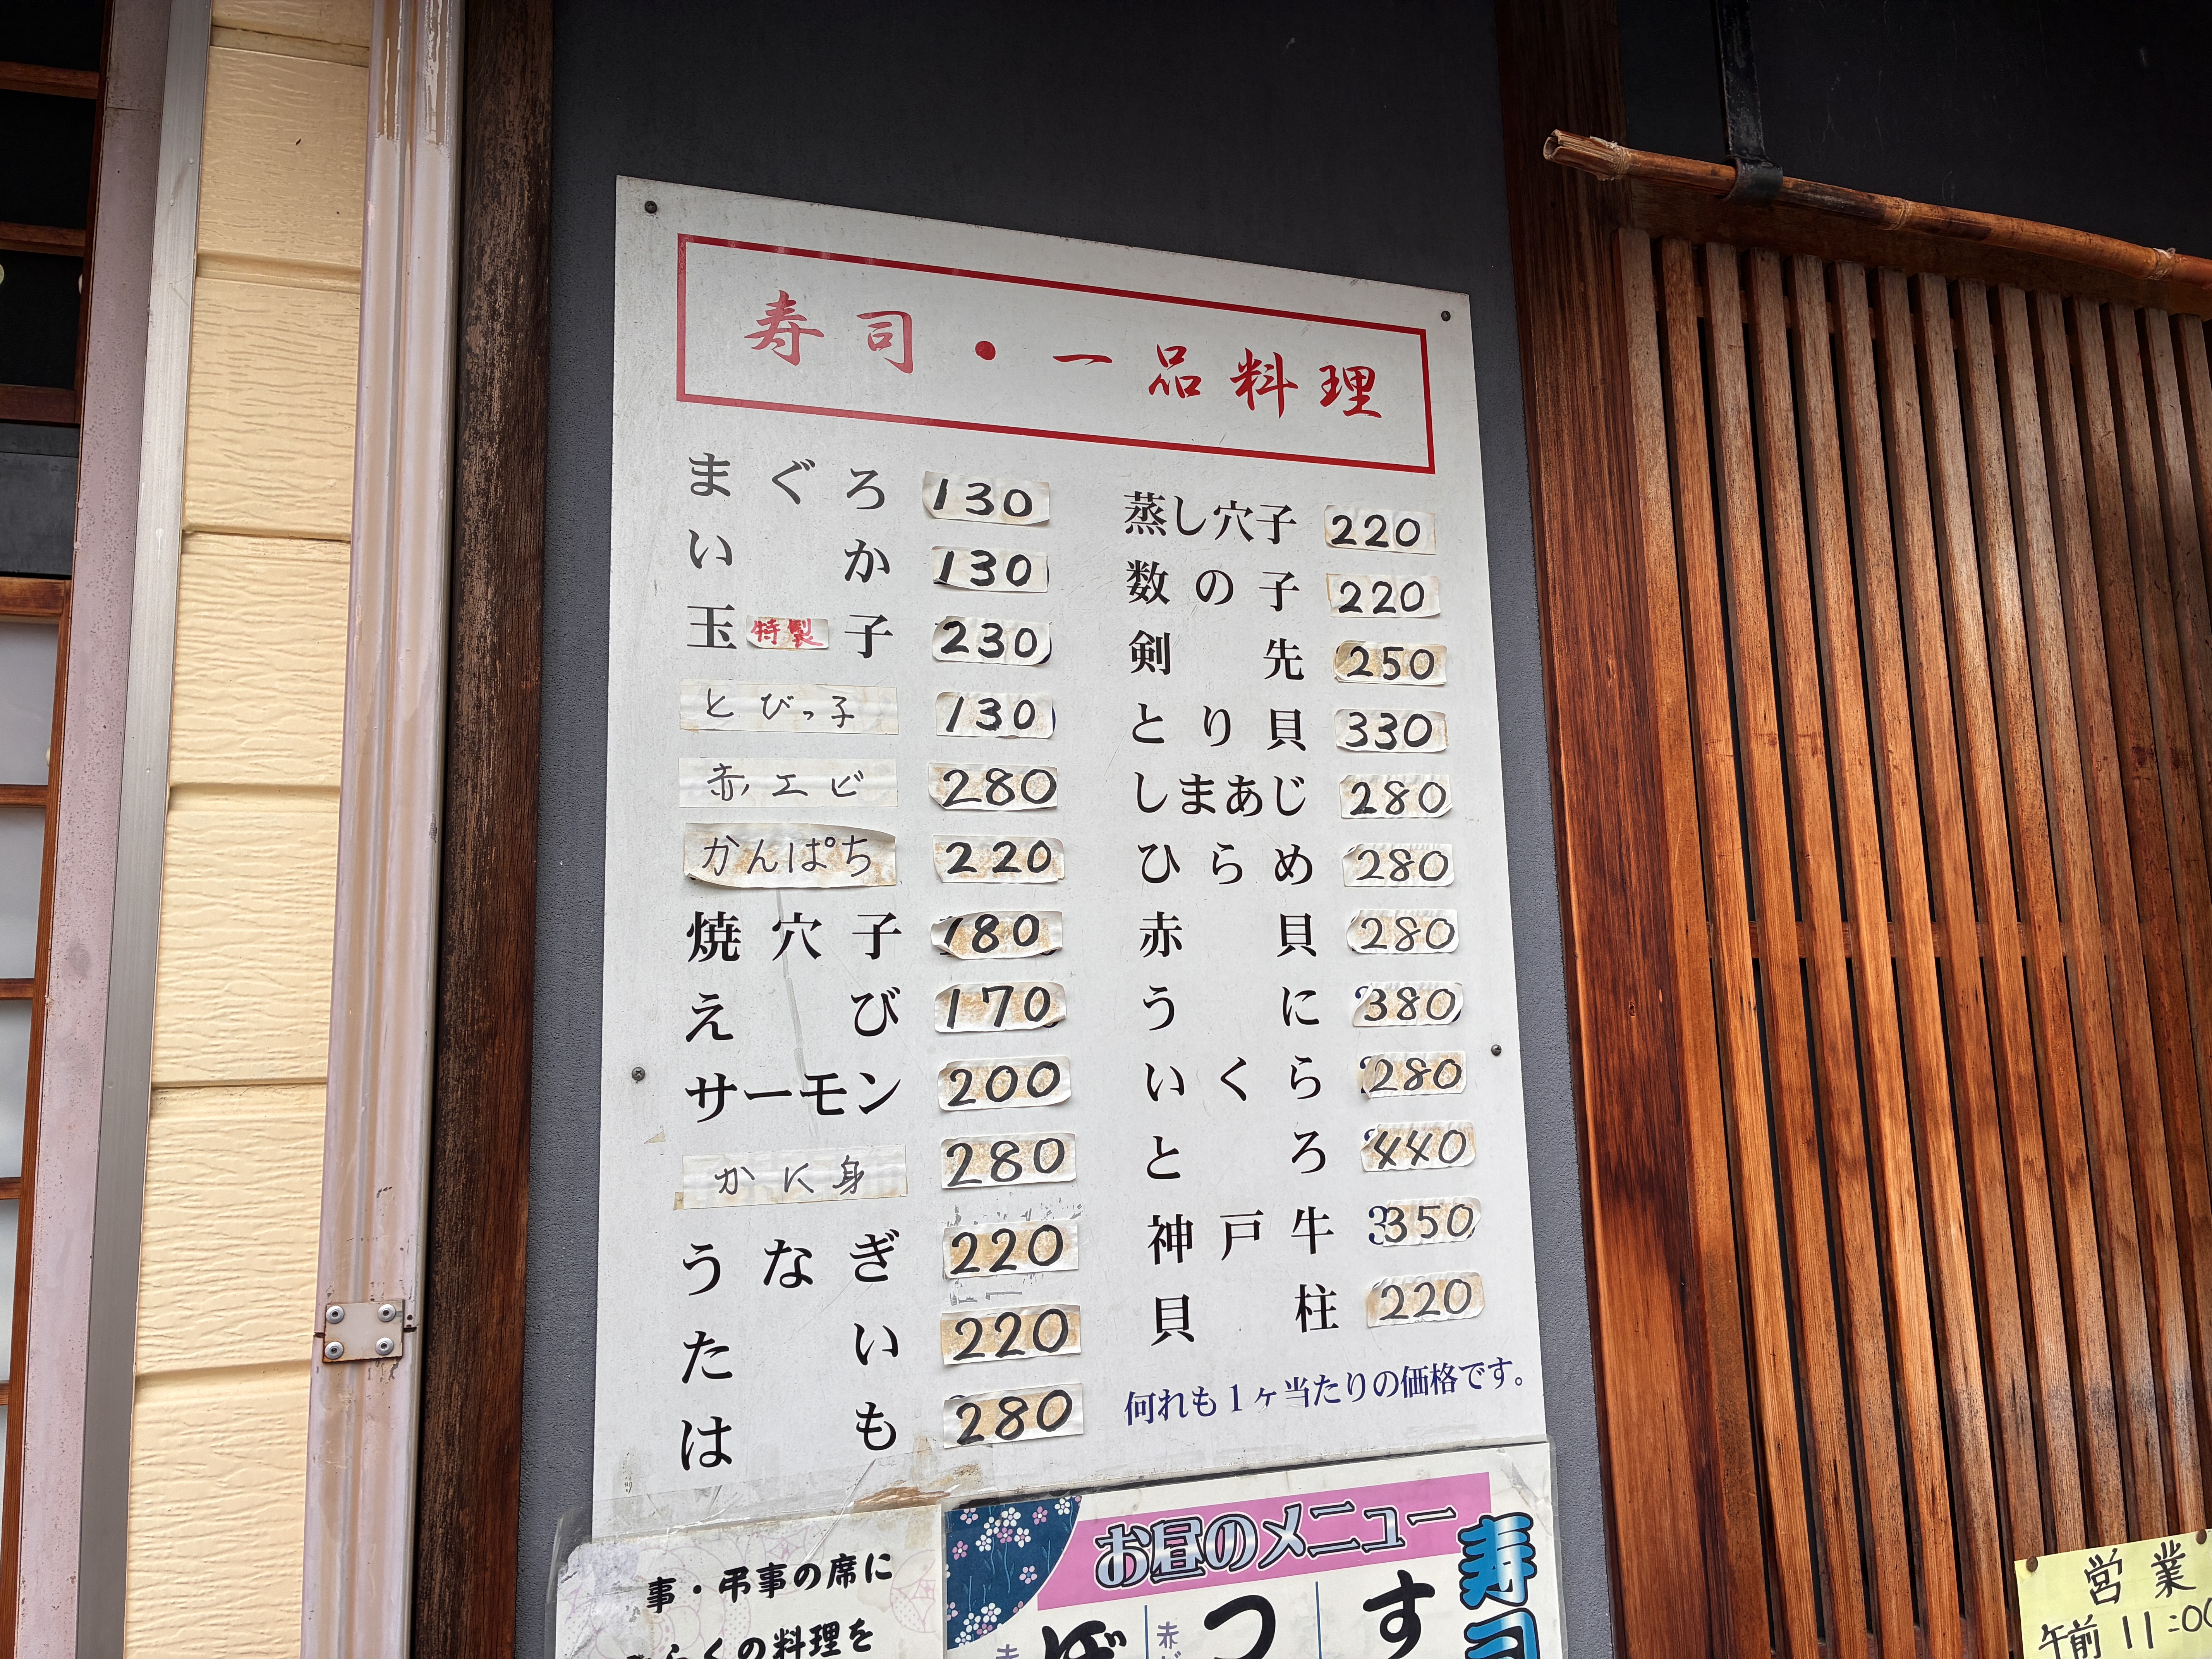 寿司・一品料理
まぐろ 130
いか 130
玉特製子 230
とびっ子 130
赤エビ 280
かんぱち 220
焼穴子 180
えび 170
サーモン 200
かに身 280
うなぎ 220
たい 220
はも 280
蒸し穴子 220
数の子 220
剣先 250
とり貝 330
しまあじ 280
ひらめ 280
赤貝 280
うに 380
いくら 280
とろ 440
神戸牛 350
貝柱 220
何れも1ヶ当たりの価格です。
事・弔事の席に
らくの料理を
お昼のメニュー
寿司
す
つ
赤
営業
午前11:00